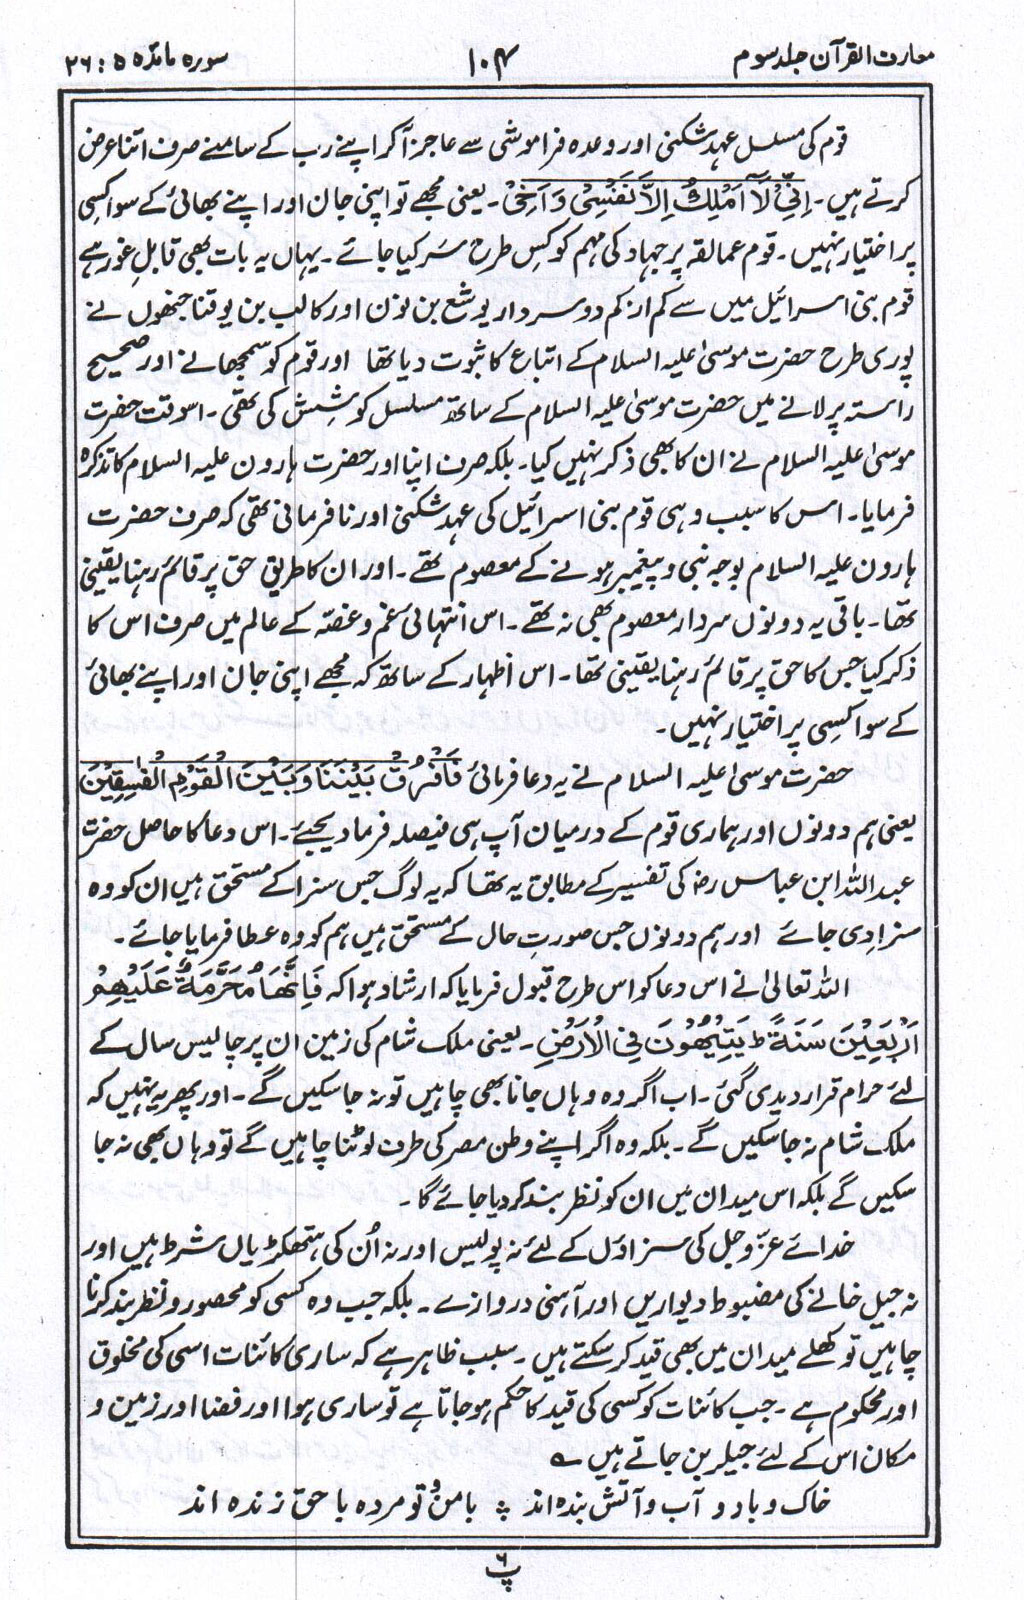 معارف القرآن جلد سوم
۱۰۴
سورہ مائدہ ۵ : ۲۶
قوم کی مسلسل عہد شکنی اور وعدہ فراموشی سے عاجز آکر اپنے رب کے سامنے صرف اتنا عرض
کرتے ہیں۔ اِنِّیْ لَآ اَمْلِکُ اِلَّا نَفْسِیْ وَ اَخِیْ۔ یعنی مجھے تو اپنی جان اور اپنے بھائی کے سوا کسی
پر اختیار نہیں۔ قوم عمالقہ پر جہاد کی مہم کو کِس طرح سَر کیا جائے۔ یہاں یہ بات بھی قابلِ غور ہے
قوم بنی اسرائیل میں سے کم از کم دو سردار یوشع بن نون اور کالب بن یوقنا جنھوں نے
پوری طرح حضرت موسیٰ علیہ السلام کے اتباع کا ثبوت دیا تھا اور قوم کو سمجھانے اور صحیح
راستہ پر لانے میں حضرت موسیٰ علیہ السلام کے ساتھ مسلسل کوشِش کی تھی۔ اسوقت حضرت
موسیٰ علیہ السلام نے ان کا بھی ذکر نہیں کیا۔ بلکہ صرف اپنا اور حضرت ہارون علیہ السلام کا تذکرہ
فرمایا۔ اس کا سبب وہی قوم بنی اسرائیل کی عہد شکنی اور نافرمانی تھی کہ صرف حضرت
ہارون علیہ السلام بوجہ نبی و پیغمبر ہونے کے معصوم تھے۔ اور ان کا طریق حق پر قائم رہنا یقینی
تھا۔ باقی یہ دونوں سردار معصوم بھی نہ تھے۔ اس انتہائی غم و غصّہ کے عالم میں صرف اس کا
ذکر کیا جس کا حق پر قائم رہنا یقینی تھا۔ اس اظہار کے ساتھ کہ مجھے اپنی جان اور اپنے بھائی
کے سوا کسِی پر اختیار نہیں۔
حضرت موسیٰ علیہ السلام نے یہ دعا فرمائی فَافْرُقْ بَیْنَنَا وَ بَیْنَ الْقَوْمِ الْفٰسِقِیْنَ
یعنی ہم دونوں اور ہماری قوم کے درمیان آپ ہی فیصلہ فرما دیجئے۔ اس دعا کا حاصل حضرت
عبد اللہ ابن عباس رضؓ کی تفسیر کے مطابق یہ تھا کہ یہ لوگ جس سزا کے مستحق ہیں ان کو وہ
سزا دِی جائے اور ہم دونوں جس صورتِ حال کے مستحق ہیں ہم کو وہ عطا فرمایا جائے۔
اللہ تعالیٰ نے اس دعا کو اس طرح قبول فرمایا کہ ارشاد ہوا کہ فَاِنَّهَا مُحَرَّمَةٌ عَلَيْهِمْ
اَرْبَعِيْنَ سَنَةً ط يَتِيْهُوْنَ فِي الْاَرْضِ۔ یعنی ملک شام کی زمین ان پر چالیس سال کے
لئے حرام قرار دیدی گئی۔ اب اگر وہ وہاں جانا بھی چاہیں تو نہ جا سکیں گے۔ اور پھر یہ نہیں کہ
ملک شام نہ جا سکیں گے۔ بلکہ وہ اگر اپنے وطن مصر کی طرف لوٹنا چاہیں گے تو وہاں بھی نہ جا
سکیں گے بلکہ اس میدان میں ان کو نظر بند کر دیا جائے گا۔
خدائے عزّوجل کی سزاؤں کے لئے نہ پولیس اور نہ اُن کی ہتھکڑیاں شرط ہیں اور
نہ جیل خانے کی مضبوط دیواریں اور آہنی دروازے۔ بلکہ جب وہ کسی کو محصور و نظر بند کرنا
چاہیں تو کھلے میدان میں بھی قید کر سکتے ہیں۔ سبب ظاہر ہے کہ ساری کائنات اسی کی مخلوق
اور محکوم ہے۔ جب کائنات کو کسی کی قید کا حکم ہو جاتا ہے تو ساری ہوا اور فضا اور زمین و
مکان اس کے لئے جیلر بن جاتے ہیں ؎
خاک و باد و آب و آتش بندہ اند ؞ با من و تو مردہ با حق زندہ اند
پ ۶